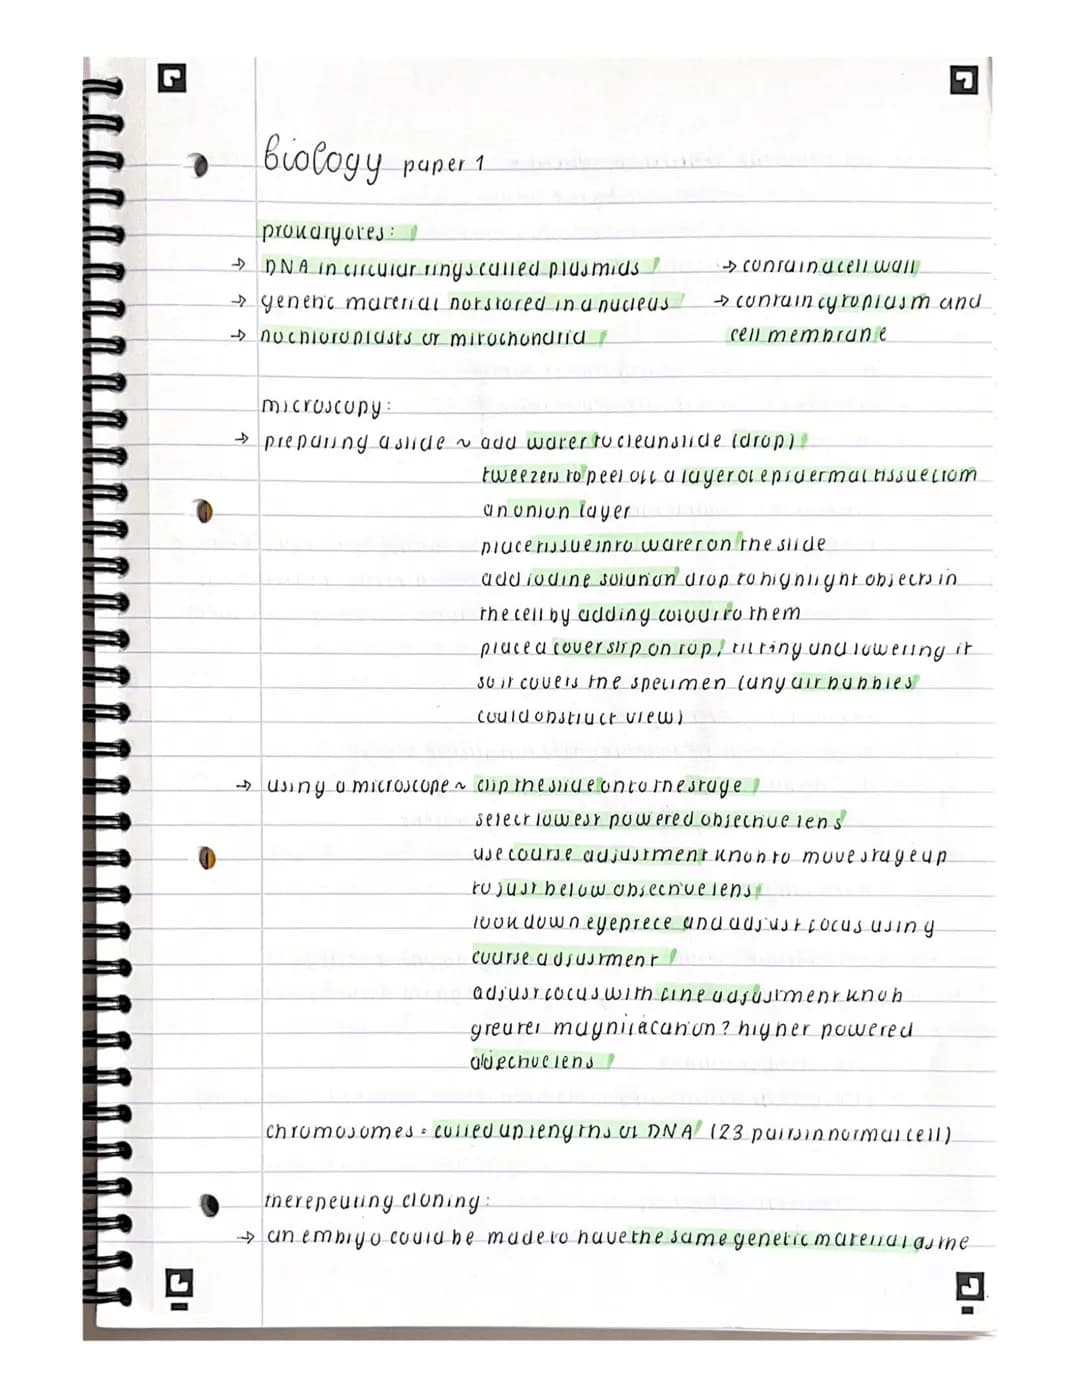 biology paper 1
prokaryotes:
→ DNA in circular rings called plasmids → contain a cell wall
→ genetic material not stored in a nucleus → contain cytoplasm and
→ no chloroplasts or mitochondria cell membrane
microscopy:
→ preparing a slide ~ add water to clean slide (drop)
tweezers to peel off a layer of epidermal tissue from
an onion layer
place tissue into water on the slide
add iodine solution drop to highlight objects in
the cell by adding colour to them
place a cover slip on top, tilting and lowering it
so it covers the specimen (any air bubbles
could obstruct view)
→ using a microscope ~ clip the slide onto the stage
select lowest powered objective lens
use course adjustment knob to move stage up
to just below objective lens
look down eyepiece and adjust focus using
course adjustment
adjust focus with fine adjustment knob
greater magnification? higher powered
objective lens
chromosomes = coiled up lengths of DNA (23 pairs in normal cell)
therepeuting cloning:
→ an embryo could be made to have the same genetic material as the